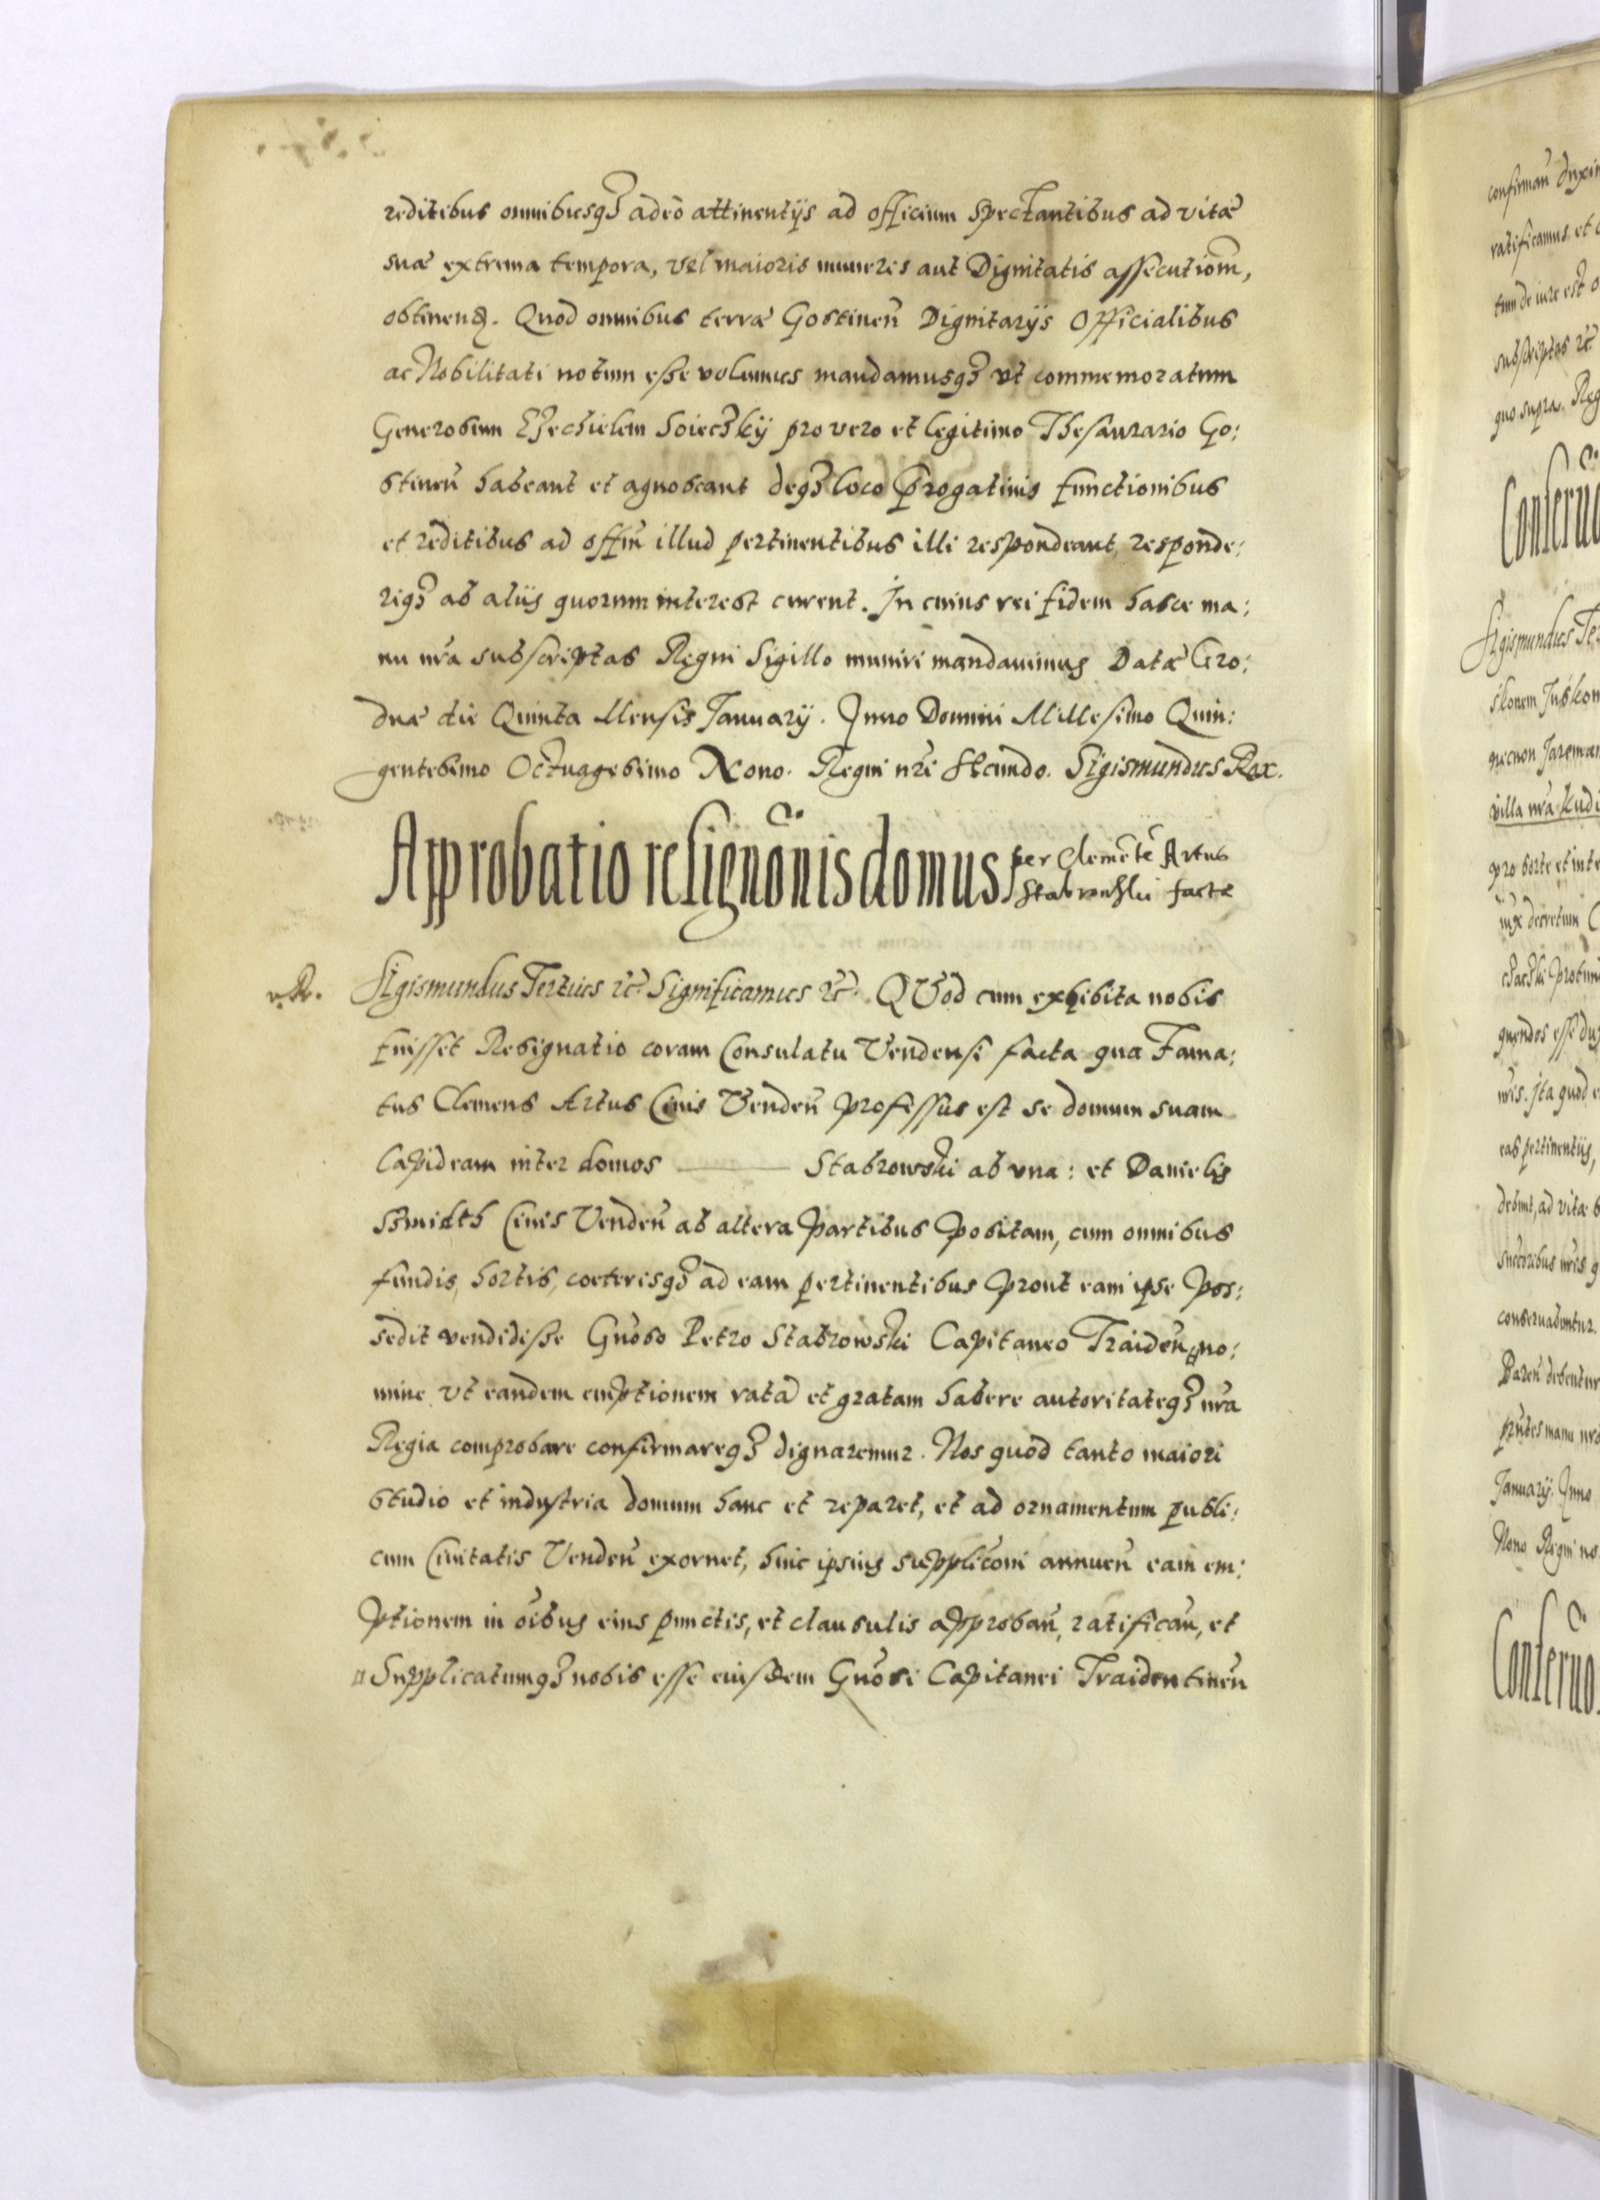 reditibus omnibusq₃ adeò attinentijs ad officium spectantibus ad vitæ
suæ extrema tempora, vel maioris muneris aut Dignitatis assecutiom̃,
obtinen. Quod omnibus terræ Gostineñ Dignitarijs Officialibus
ac Nobilitati notum esse volumus mandamusq₃ vt commemoratum
Generosum Ezechielem pro vero et legitimo Thesaurario Go:
stineñ habeant et agnoscant deq₃ loco p̃rogatiuis functionibus
et reditibus ad offm̃ illud pertinentibus illi respondeant, responde:
riq₃ ab alijs quorum interest curent. In cuius rei fidem hasce ma:
nu nr̃a subscriptas Regni Sigillo muniri mandauimus Datæ Gro:
dnæ die Quinta Mensis Januarij. Anno Domini Millesimo Quin:
gentesimo Octuagesimo Nono. Regni nr̃i Secundo. Sigismundus Rex.
Approbatio resignõnis domus per Clemẽtẽ Artus
factæ
Sigismundus Tertius &c̃ Significamus &c̃. QVod cum exhibita nobis
fuisset Resignatio coram Consulatu Vendensi facta qua Fama:
tus Clemens Artus Ciuis Vendeñ professus est se domum suam
Lapideam inter domos ——— Stabrowski ab vna: et Danielis
Szmidth Ciuis Vendeñ ab altera partibus positam, cum omnibus
fundis, hortis, coeterisq₃ ad eam pertinentibus prout eam ipse pos:
sedit vendidisse Gñoso Petro Stabrowski Capitaneo Traideñ ¤ no:
mine vt eandem emptionem ratã et gratam habere autoritateq₃ nr̃a
Regia comprobare confirmareq₃ dignaremur. Nos quod tanto maiori
studio et industria domum hanc et reparet, et ad ornamentum publi:
cum Ciuitatis Vendeñ exornet, huic ipsius supplicõni annueñ eam em:
ptionem in õibus eius punctis, et clausulis approbañ, ratificañ, et
¤ Supplicatumq₃ nobis esse eiusdem Gñosi Capitanei Traidentineñ
confirmañ duxim
ratificamus et
tum de iure est
subscriptas &c̃
quo supra. Reg
Conseruõ
Sigismundus Te
villa nr̃a
pro sorte et inte
decretum
quendos esse du
nr̃is. Ita quod e
eas pertinentijs,
debunt, ad vitæ
conseruabuntur.
debentur
manu nr̃a
Januarij. Anno
Nono Regni
Conseruõ.